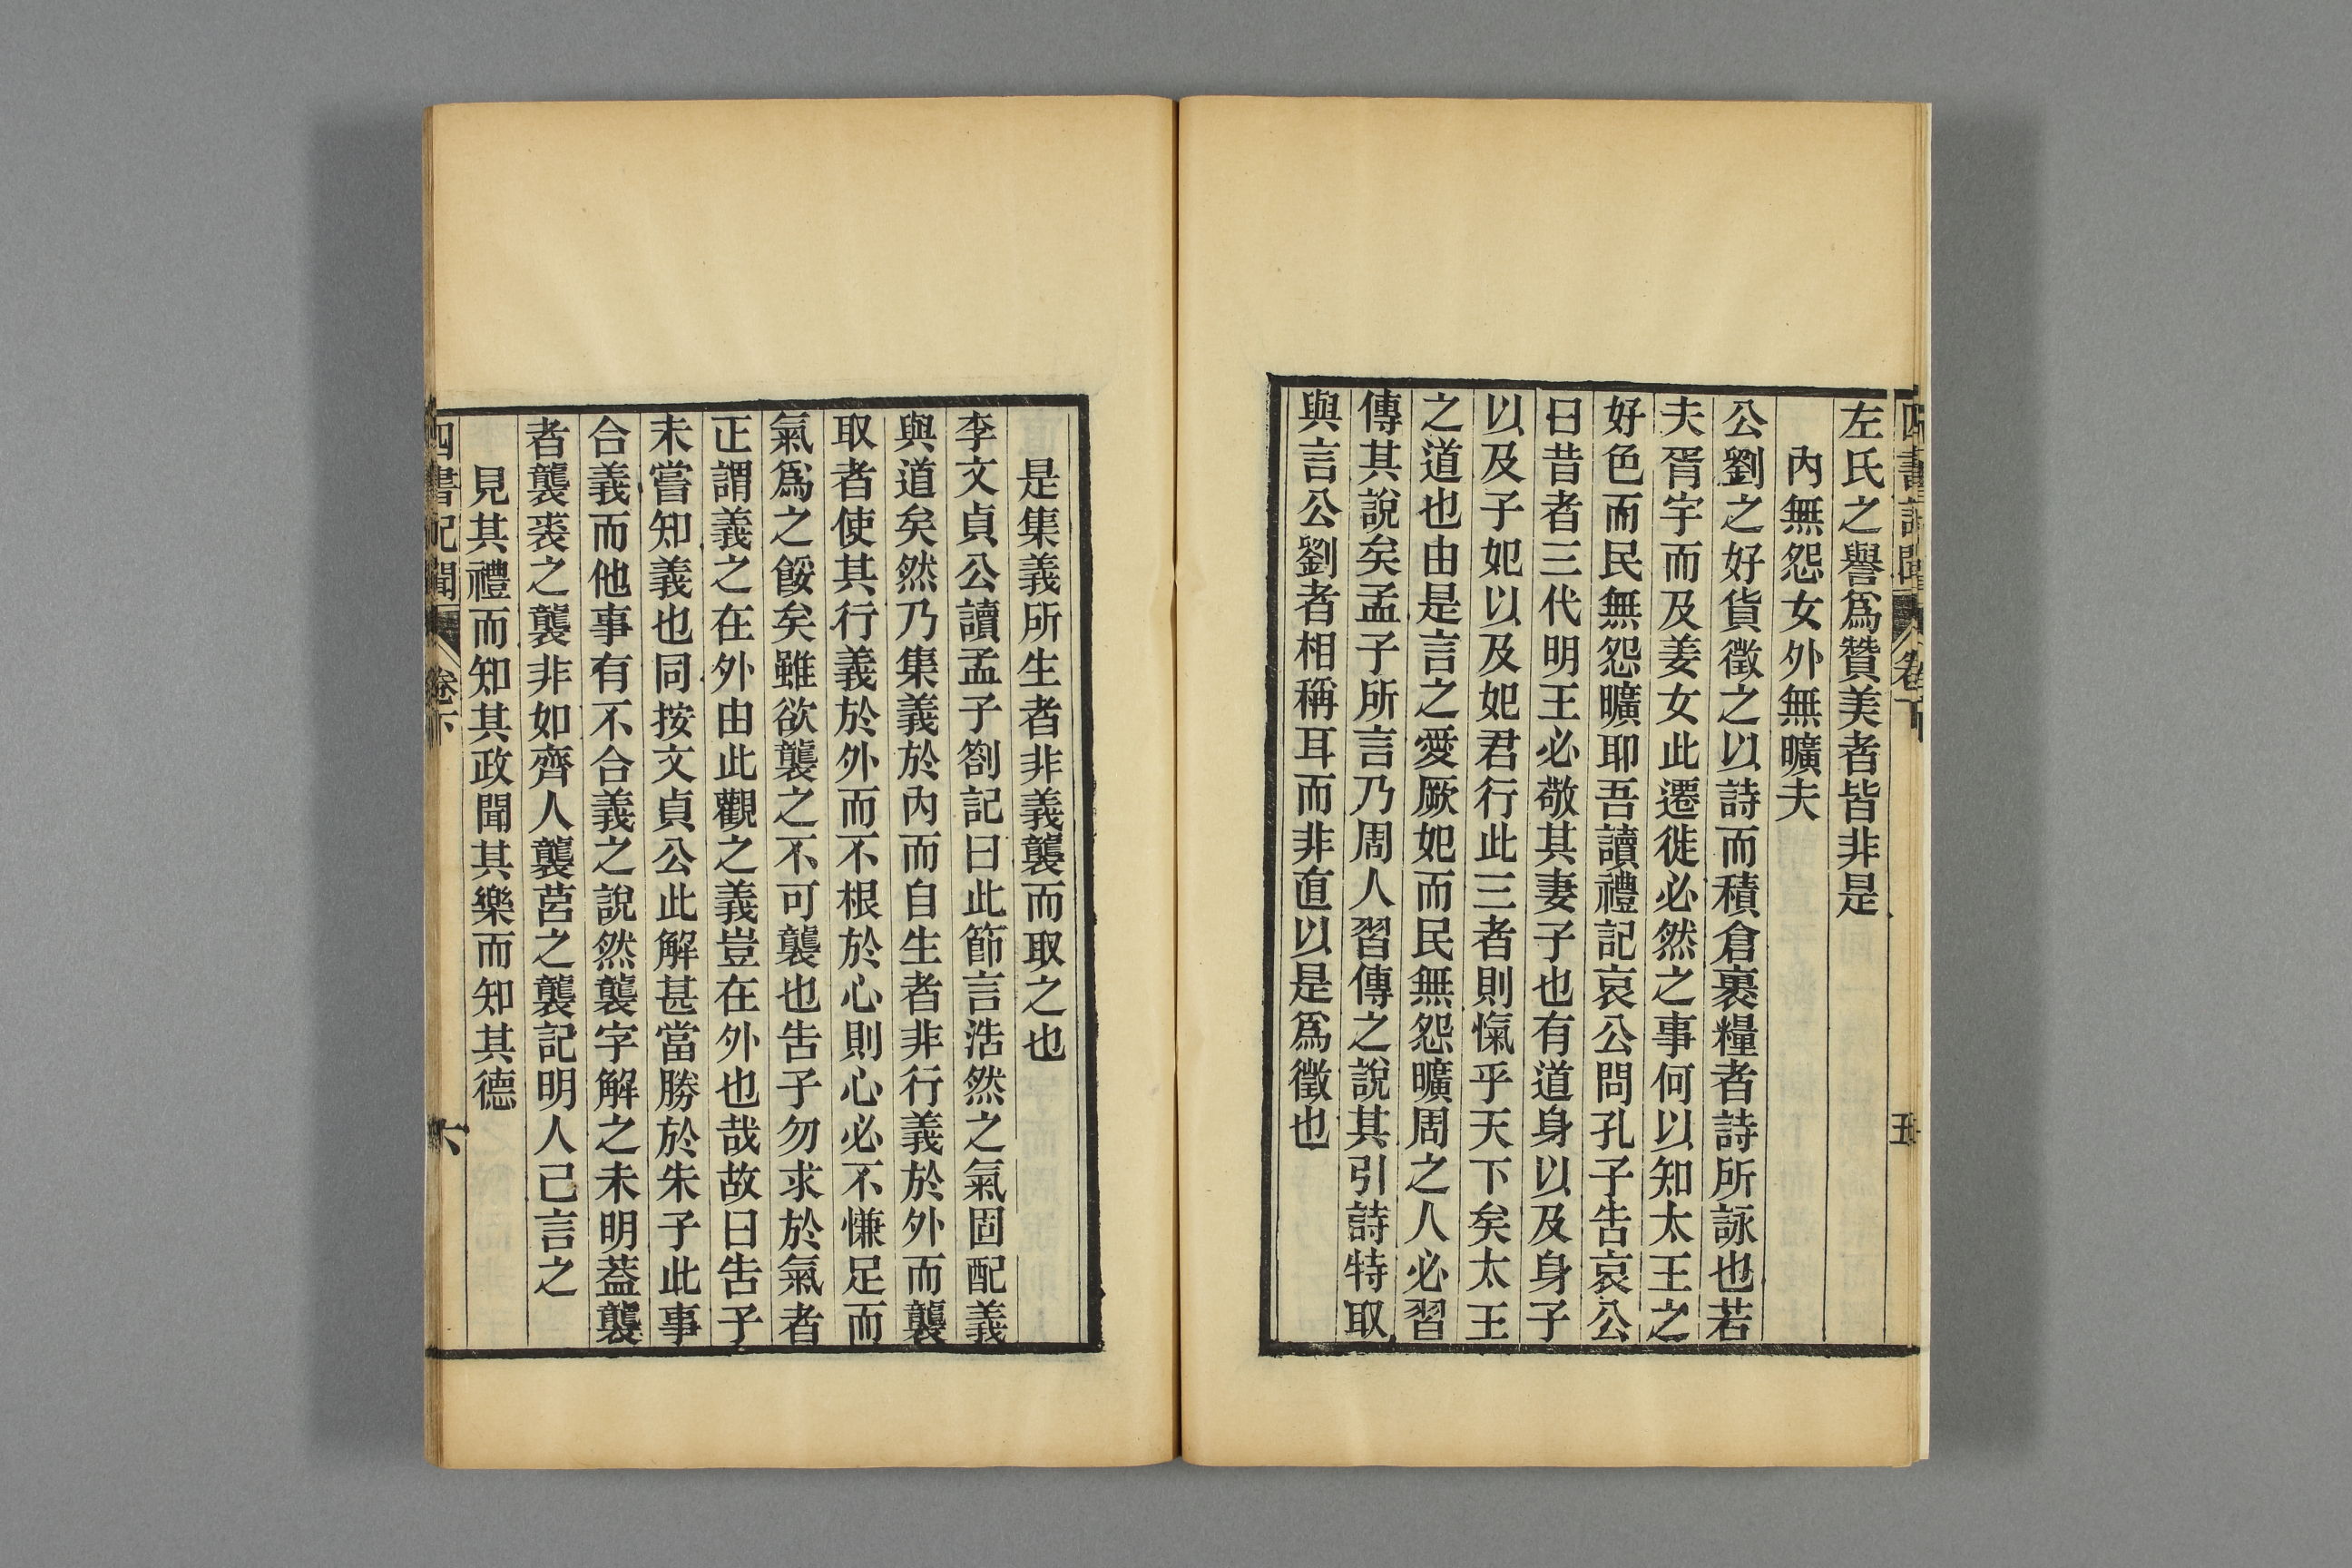 四書記聞 卷下 五
左氏之譽爲贊美者皆非是
內無怨女外無曠夫
公劉之好貨徵之以詩而積倉裹糧者詩所詠也若
夫胥宇而及姜女此遷徙必然之事何以知太王之
好色而民無怨曠耶吾讀禮記哀公問孔子告哀公
曰昔者三代明王必敬其妻子也有道身以及身子
以及子妃以及妃君行此三者則愾乎天下矣太王
之道也由是言之愛厥妃而民無怨曠周之人必習
傳其說矣孟子所言乃周人習傳之說其引詩特取
與言公劉者相稱耳而非直以是爲徵也
是集義所生者非義襲而取之也
李文貞公讀孟子劄記曰此節言浩然之氣固配義
與道矣然乃集義於內而自生者非行義於外而襲
取者使其行義於外而不根於心則心必不慊足而
氣爲之餒矣雖欲襲之不可襲也告子勿求於氣者
正謂義之在外由此觀之義豈在外也哉故曰告子
未嘗知義也同按文貞公此解甚當勝於朱子此事
合義而他事有不合義之說然襲字解之未明葢襲
者襲裘之襲非如齊人襲莒之襲記明人己言之
見其禮而知其政聞其樂而知其德
四書記聞 卷下 六